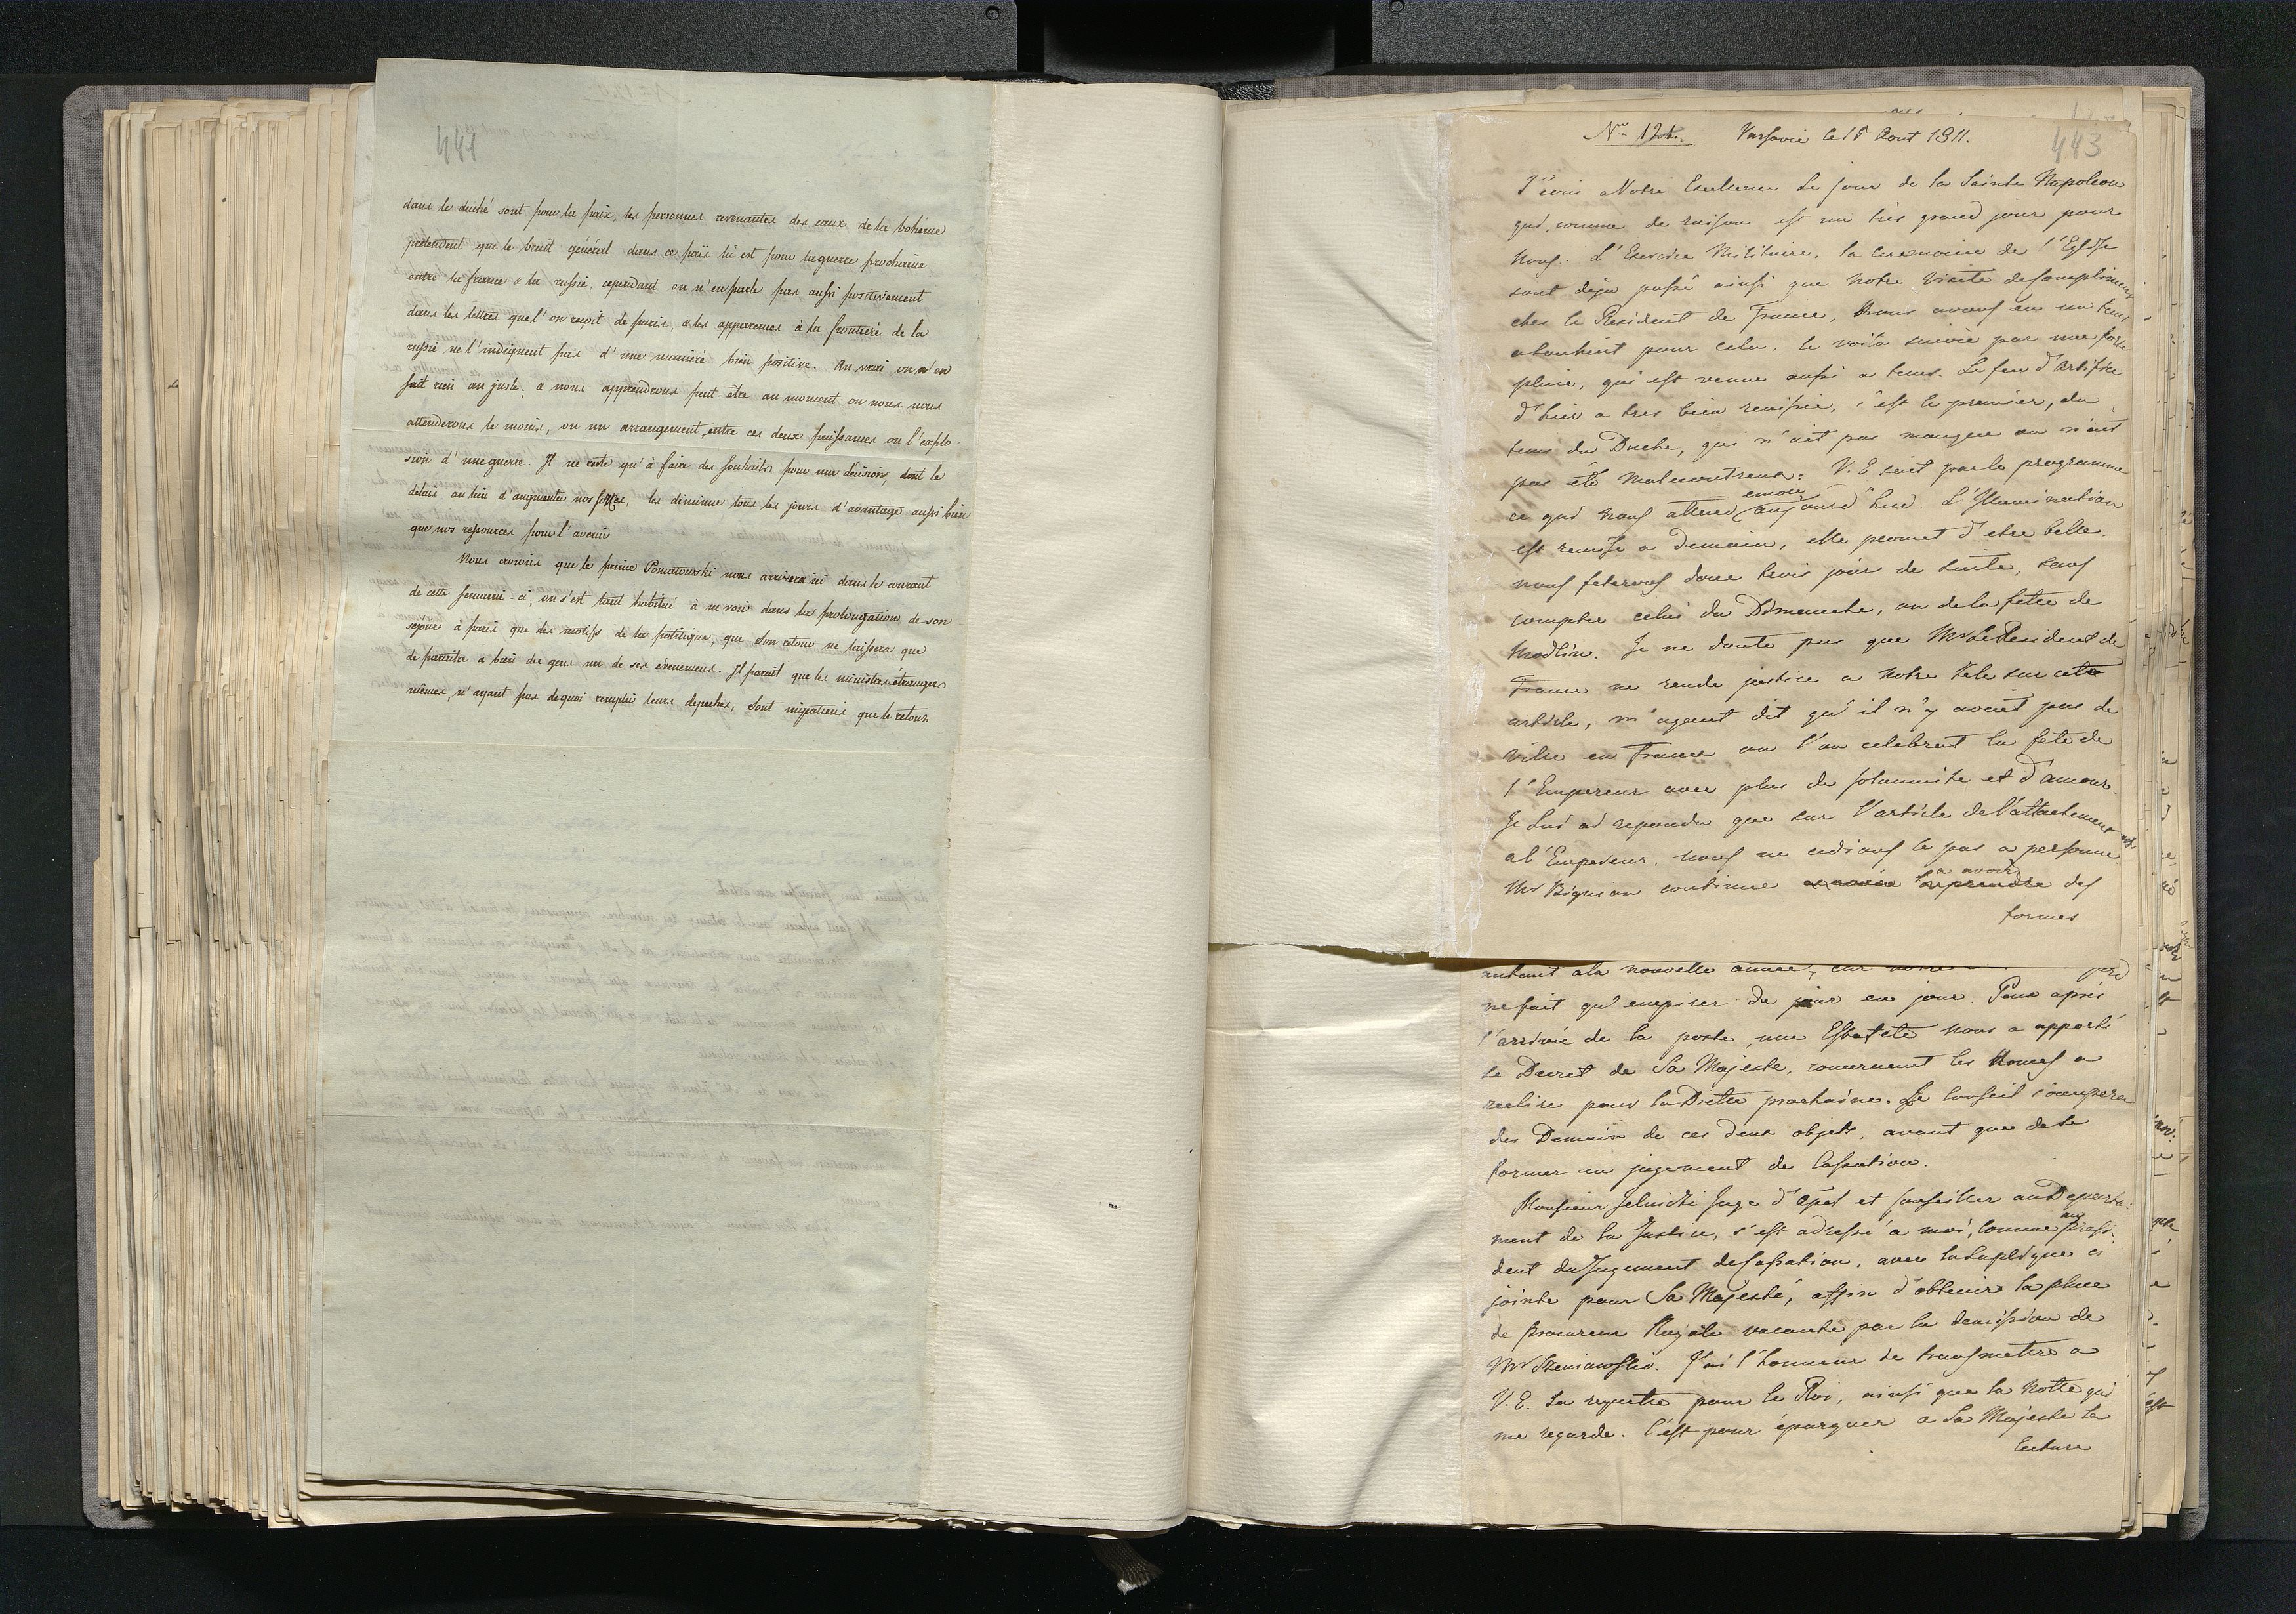 441
dans le duché sont pour la paix, les personnes revenantes des eaux de la bohème
prétendent que le bruit général dans ce païs là est pour la guerre prochaine
entre la france & la russie, cependant on n'en parle pas aussi positivement
dans les lettres que l'on reçoit de paris, & les apparences à la frontière de la
russie ne l'indiquent pas d'une manière bien positive. Au vrai on n'en
sait rien au juste; & nous apprendrons peut-être au moment ou nous nous
attenderons le moins, ou un arrangement entre ces deux puissances ou l'explo-
sion d'une guerre. Il ne reste qu'à faire des souhaits pour une décision, dont le
délais au lieu d'augmenter nos forces, les diminue tous les jours d'avantage aussi bien
que nos ressources pour l'avenir
Nous croions que le prince Poniatowski nous arrivera ici dans le courant
de cette semaine-ci, on s'est tant habitué à ne voir dans la prolongation de son
sejour à paris que des motifs de la politique, que son retour ne laissera que
de paraitre a bien des gens un de ses évenemens. Il parait que les ministres étrangers
mêmes, n'ayant pas de quoi remplir leurs depeches, sont impatiens que le retour
443
Nro 124. Varsovie le 15 Aout 1811.
J'écris a Votre Excellence le jour de la Sainte Napoleon
qui, comme de raison est un très grand jour pour
nous. L'Exercice Militaire, la Ceremonie de l'Eglise
sont deja passé ainsi que notre visite de Complimens
chez le Resident de France, Nous avons eu un tems
pour cela. le voilà suivie par une forte
pluie, qui est venue aussi a tems. Le feu d'Artifice
d'hier a tres bien reussie, c'est le premier, du
tems du Duché, qui n'ait pas manqué ou n'ait
pas été Malencontreux. V. E sait par le programme
ce qui nous attend encore aujourd'hui. L'Illumination
est remise a demain, elle promet d'etre belle.
nous feterons donc trois jour de suite, sans
compter celui du Dimanche, ou de la fete de
Modlin. Je ne doute pas que Mr Le Resident de
France ne rende justice a notre Zele sur cete
article, m'ayant dit qu'il n'y avait pas de
ville en France ou l'on celebrat la fete de
l'Empereur avec plus de solennité et d'amour.
Je lui ai repondu que sur l'article de l'attachement
a l'Empereur, nous ne cedions le pas a personne
Mr Bignon continue a avoir des
formes
autant a la nouvelle année, car notre
ne fait qu'empirer de jour en jour. Peu après
l'arrivée de la poste, une Estafete nous a apporté
Le Decret de Sa Majesté, concernant les Nonces a
reelire pour la Diette prochaine. Le Conseil s'occupera
des Demain de ces deux objets, avant que de se
former en jugement de Cassation.
Monsieur Zelinski Juge d'Apel et Conseiller au Departe-
ment de la Justice, s'est adressé a moi, comme au Presi-
dent du Jugement de Cassation, avec la Suplique ci
jointe pour Sa Majesté, affin d'obtenir la place
de Procureur Royale vacante par la demission de
Mr Szeniawski. J'ai l'honneur de transmettre a
V. E. La requette pour le Roi, ainsi que la Notte qui
me regarde. C'est pour épargner a Sa Majesté la
lecture